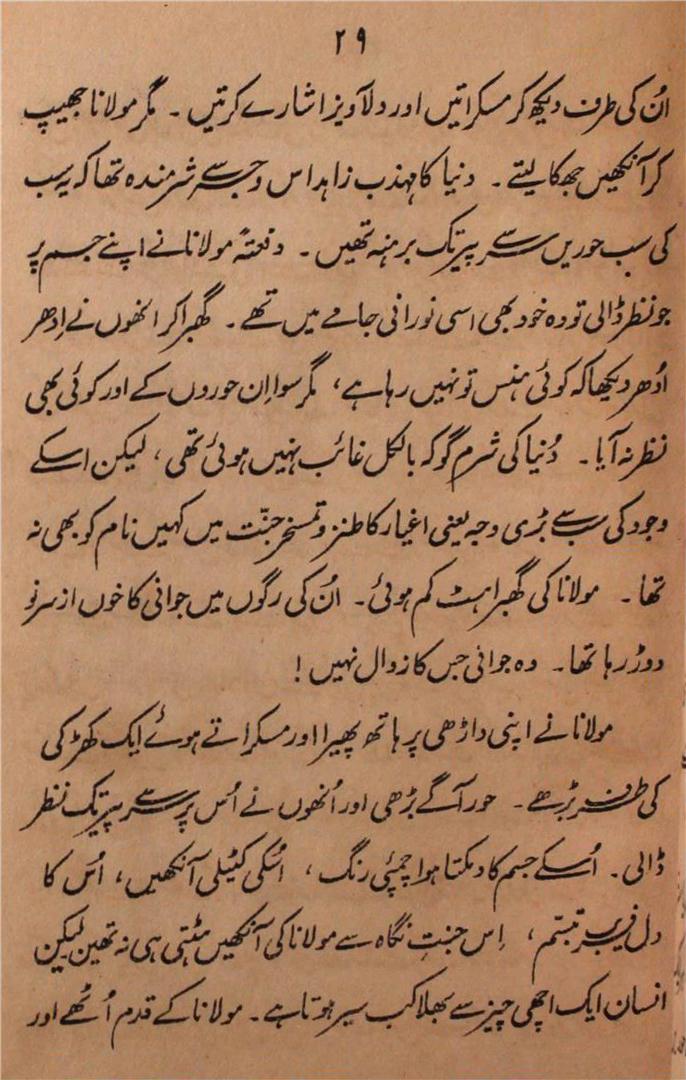 ۲۹
اُن کی طرف دیکھ کر مسکراتیں اور دلآویز اشارے کرتیں۔ مگر مولانا جھیپ
کر آنکھیں جھکا لیتے۔ دنیا کا مہذب زاہد اس وجہ سے شرمندہ تھا کہ یہ سب
کی سب حوریں سر سے پیر تک برہنہ تھیں۔ دفعتہً مولانا نے اپنے جسم پر
جو نظر ڈالی تو وہ خود بھی اسی نورانی جامے میں تھے۔ گھبرا کر انھوں نے اِدھر
اُدھر دیکھا کہ کوئی ہنس تو نہیں رہا ہے، مگر سوا اِن حوروں کے اور کوئی بھی
نظر نہ آیا۔ دُنیا کی شرم گو کہ بالکل غائب نہیں ہوئی تھی، لیکن اسکے
وجود کی سب سے بڑی وجہ یعنی اغیار کا طنز و تمسخر جنّت میں کہیں نام کو بھی نہ
تھا۔ مولانا کی گھبراہٹ کم ہوئی۔ اُن کی رگوں میں جوانی کا خوں از سرِ نو
دوڑ رہا تھا۔ وہ جوانی جس کا زوال نہیں!
مولانا نے اپنی داڑھی پر ہاتھ پھیرا اور مسکراتے ہوئے ایک کھڑکی
کی طرف بڑھے۔ حور آگے بڑھی اور اُنھوں نے اُس پر سر سے پیر تک نظر
ڈالی۔ اُسکے جسم کا دمکتا ہوا چمپئی رنگ، اسُکی کٹیلی آنکھیں، اُس کا
دل فریب تبسّم، اِس جنتِ نگاہ سے مولانا کی آنکھیں ہٹتی ہی نہ تھین لیکن
انسان ایک اچھی چیز سے بھلا کب سیر ہوتا ہے۔ مولانا کے قدم اُٹھے اور